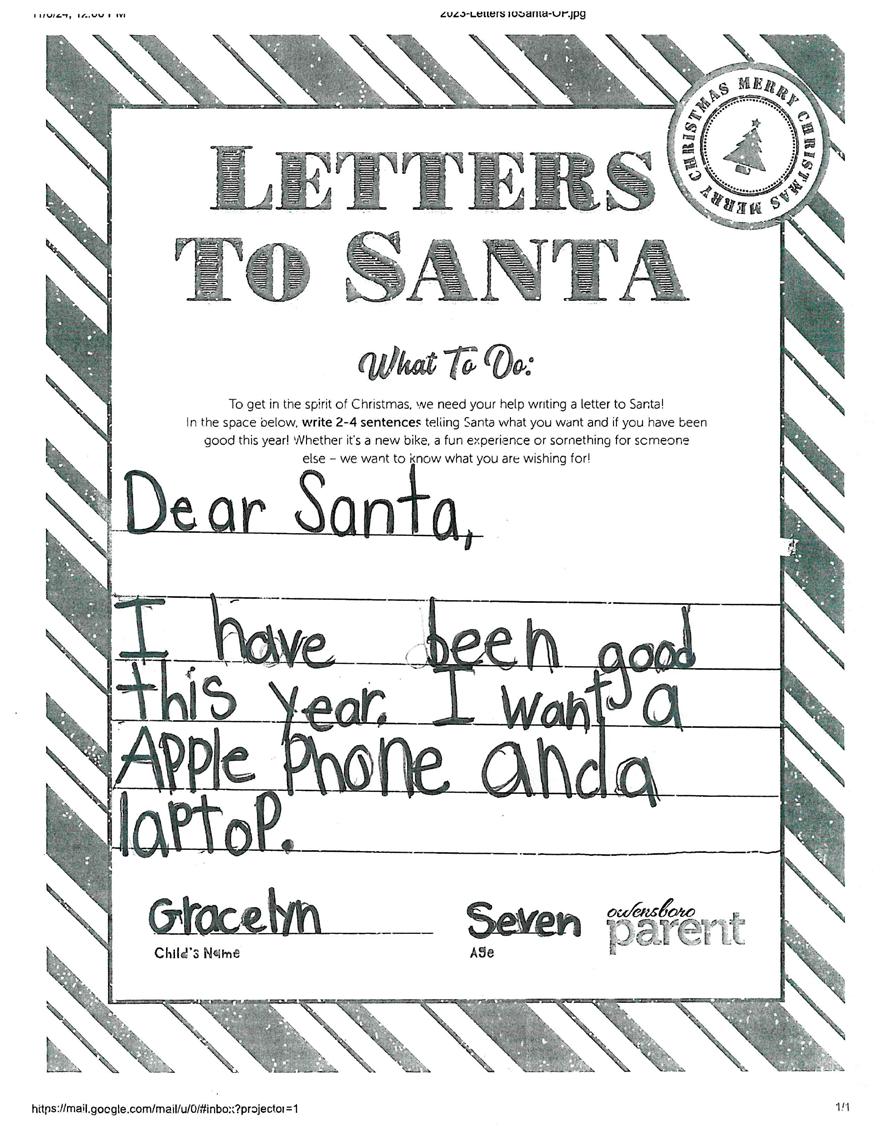 2023-LettersToSanta-OP.jpg
MERRY CHRISTMAS MERRY CHRISTMAS
LETTERS
TO SANTA
What To Do:
To get in the spirit of Christmas, we need your help writing a letter to Santa!
In the space below, write 2-4 sentences telling Santa what you want and if you have been
good this year! Whether it's a new bike, a fun experience or something for someone
else – we want to know what you are wishing for!
Dear Santa,
I have been good
this year. I want a
Apple Phone and a
laptop.
Gracelyn Seven owensboro
Child's Name Age parent
https://mail.google.com/mail/u/0/#inbox?projector=1 1/1